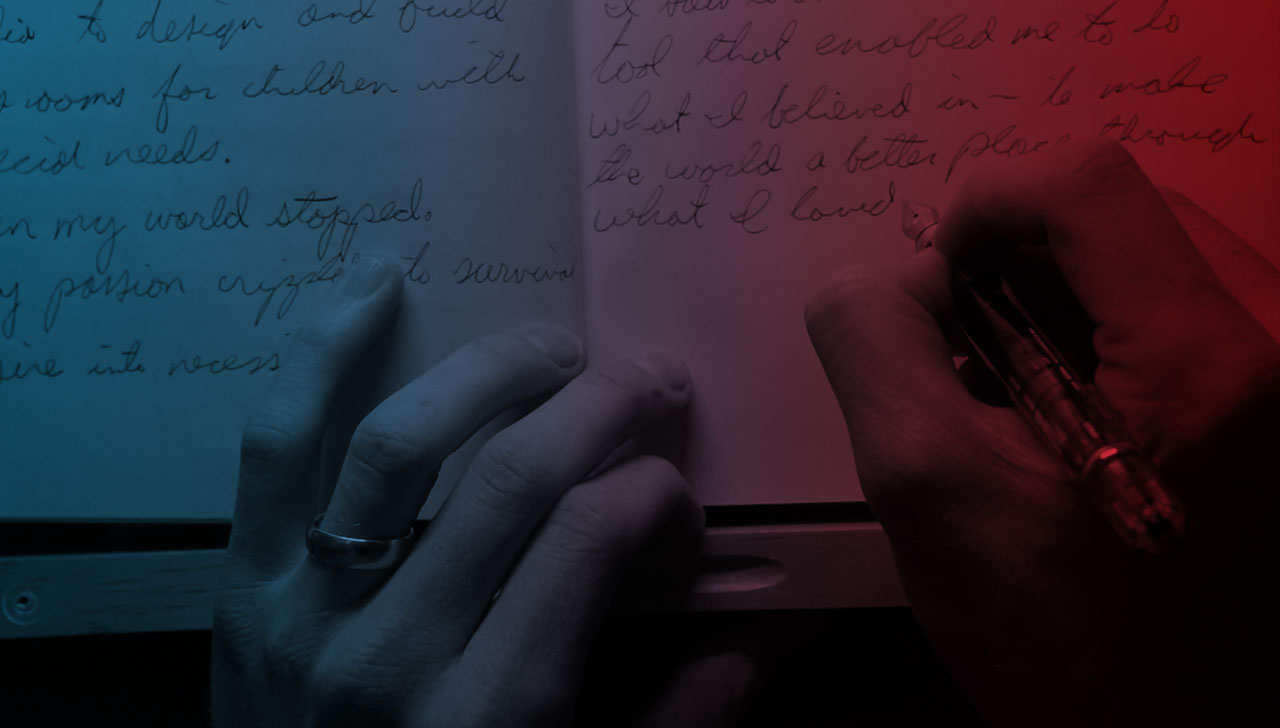 to design and build
rooms for children with
needs.
my world stopped.
passion to survival
into
tool that enabled me to do
what I believed in — to make
the world a better place through
what I loved